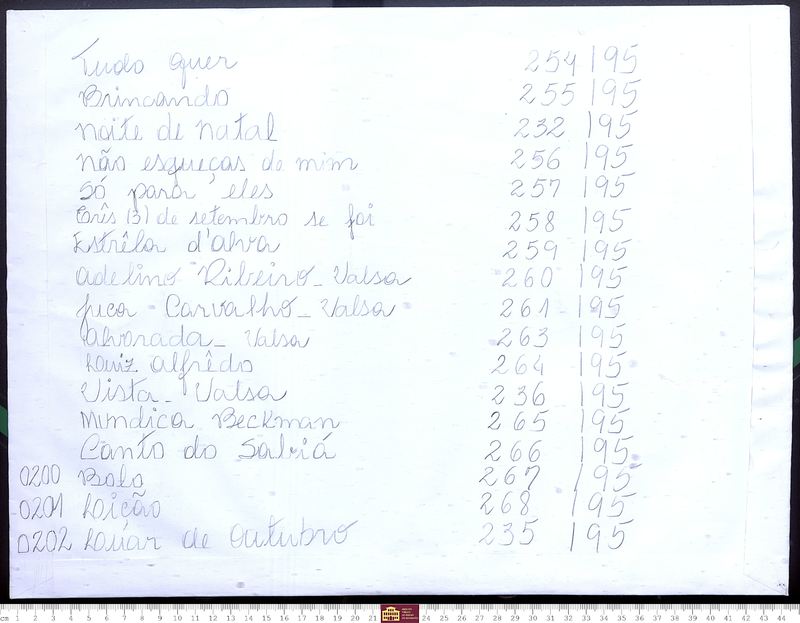 Tudo quer 254/95
Brincando 255/95
noite de natal 232/95
não esqueças de mim 256/95
Só para eles 257/95
três (3) de setembro se foi 258/95
Estrêla d'alva 259/95
adelino Ribeiro - Valsa 260/95
juca - Carvalho - Valsa 261/95
alvorada - Valsa 263/95
Luiz alfrêdo 264/95
Vista - Valsa 236/95
Mundica Beckman 265/95
Canto do Sabiá 266/95
0200 Bolo 267/95
0201 Lição 268/95
0202 Luar de Outubro 235/95
cm 1 2 3 4 5 6 7 8 9 10 11 12 13 14 15 16 17 18 19 20 21 24 25 26 27 28 29 30 31 32 33 34 35 36 37 38 39 40 41 42 43 44